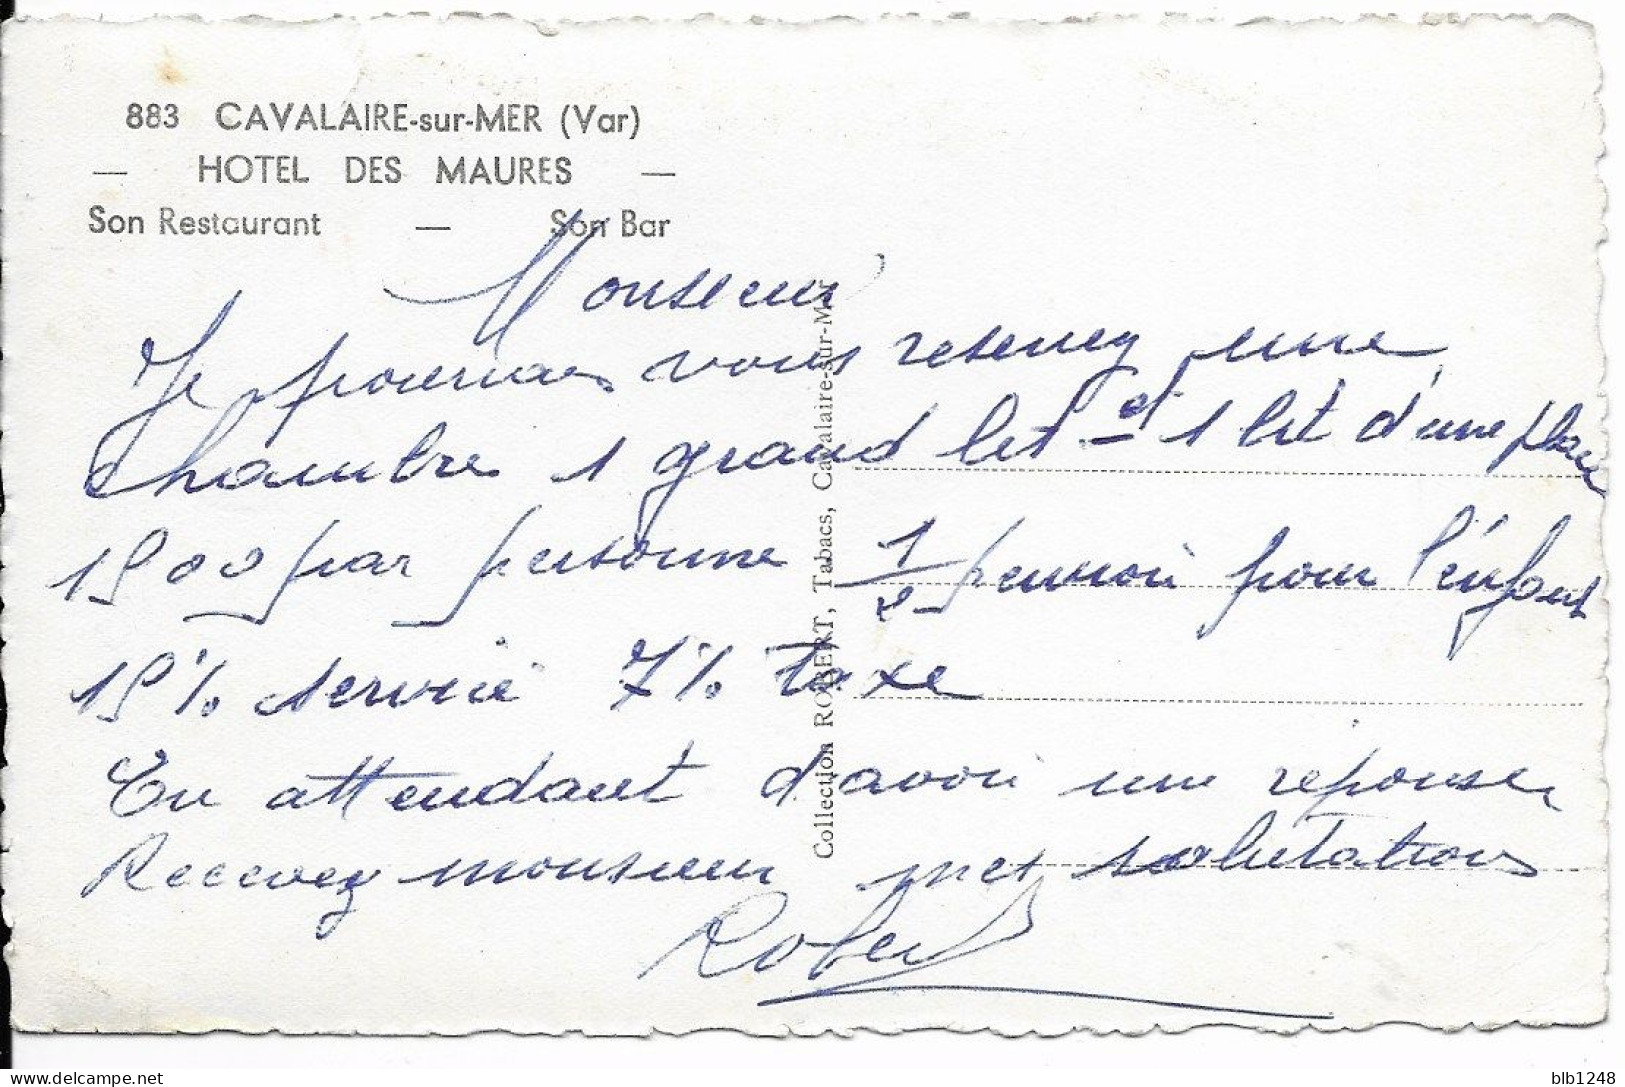 883 CAVALAIRE-sur-MER (Var)
— HOTEL DES MAURES —
Son Restaurant — Son Bar
Monsieur
Je pourrais vous reservez une
chambre 1 grand let et 1 lit d'une place
1900 par personne 1/2 pension pour l'énfant
15% service 7% taxe
En attendant d'avoir une reponse
Recevez monsieur mes salutations
Robert
Collection ROBERT, Tabacs, Cavalaire-sur-Mer
blb1248